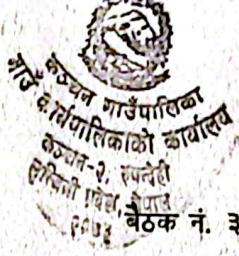 कञ्चन गाउँपालिका
गाउँ कार्यपालिकाको कार्यालय
कञ्चन-२, रुपन्देही
लुम्बिनी प्रदेश, नेपाल
२०७३
बैठक नं. ३